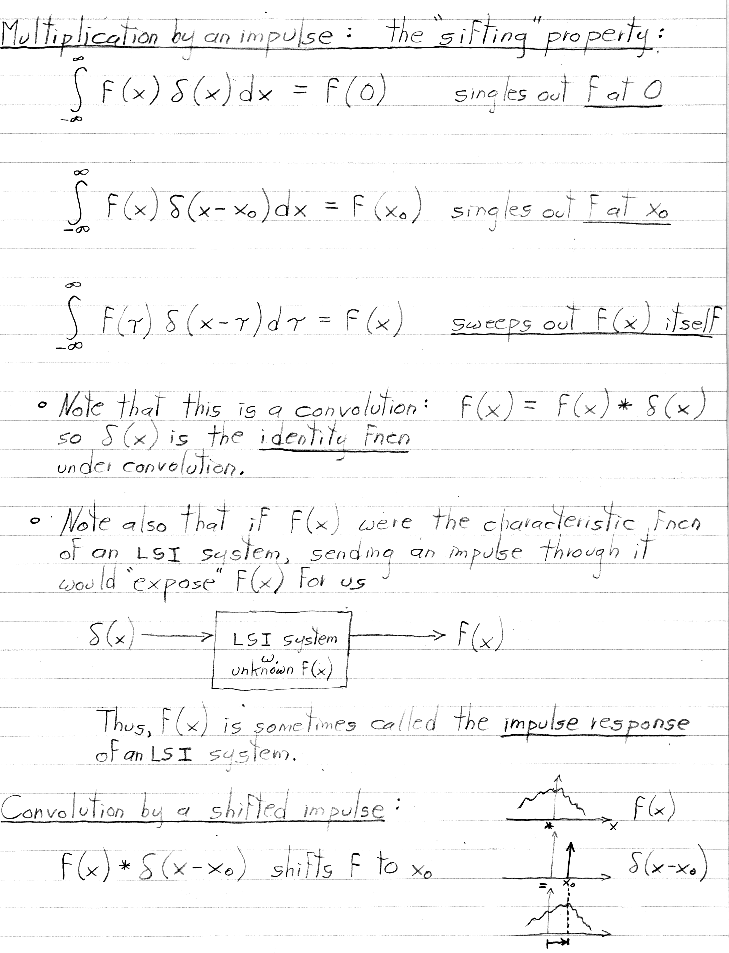 Multiplication by an impulse : the "sifting" property :
∫_{-∞}^{∞} f(x) δ(x) dx = f(0) singles out f at 0
∫_{-∞}^{∞} f(x) δ(x-x₀) dx = f(x₀) singles out f at x₀
∫_{-∞}^{∞} f(τ) δ(x-τ) dτ = f(x) sweeps out f(x) itself
• Note that this is a convolution : f(x) = f(x) * δ(x)
so δ(x) is the identity fncn
under convolution.
• Note also that if f(x) were the characteristic fncn
of an LSI system, sending an impulse through it
would "expose" f(x) for us
δ(x) → LSI system → f(x)
w.
unknown f(x)
Thus, f(x) is sometimes called the impulse response
of an LSI system.
Convolution by a shifted impulse :
f(x)
* x
f(x) * δ(x-x₀) shifts f to x₀
δ(x-x₀)
= x₀